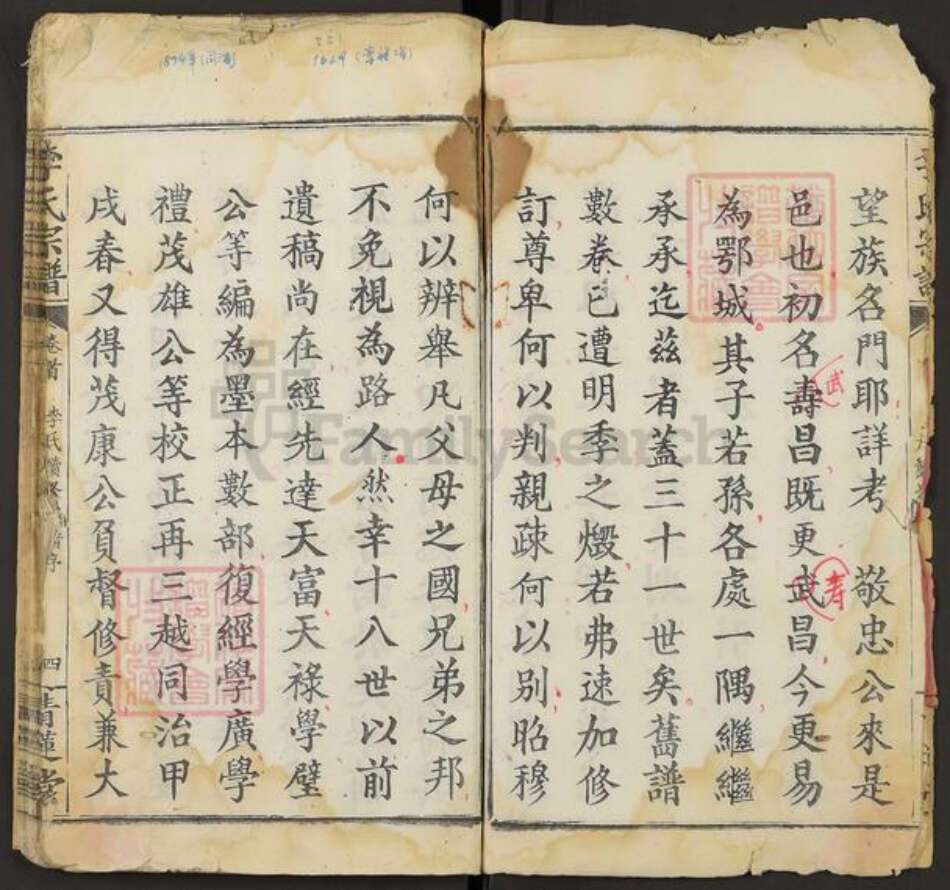 望族名門耶詳考　敬忠公來是
邑也初名壽昌既更武昌今更易
武
壽
為鄂城其子若孫各處一隅繼繼
承承迄茲者蓋三十一世矣舊譜
數卷已遭明季之燬若弗速加修
訂尊卑何以判親疎何以別昭穆
何以辨舉凡父母之國兄弟之邦
不免視為路人然幸十八世以前
遺稿尚在經先達天富天祿學璧
公等編為墨本數部復經學廣學
禮茂雄公等校正再三越同治甲
戌春又得茂康公負督修責兼大
李氏宗譜
卷首
四
青蓮堂
FamilySearch